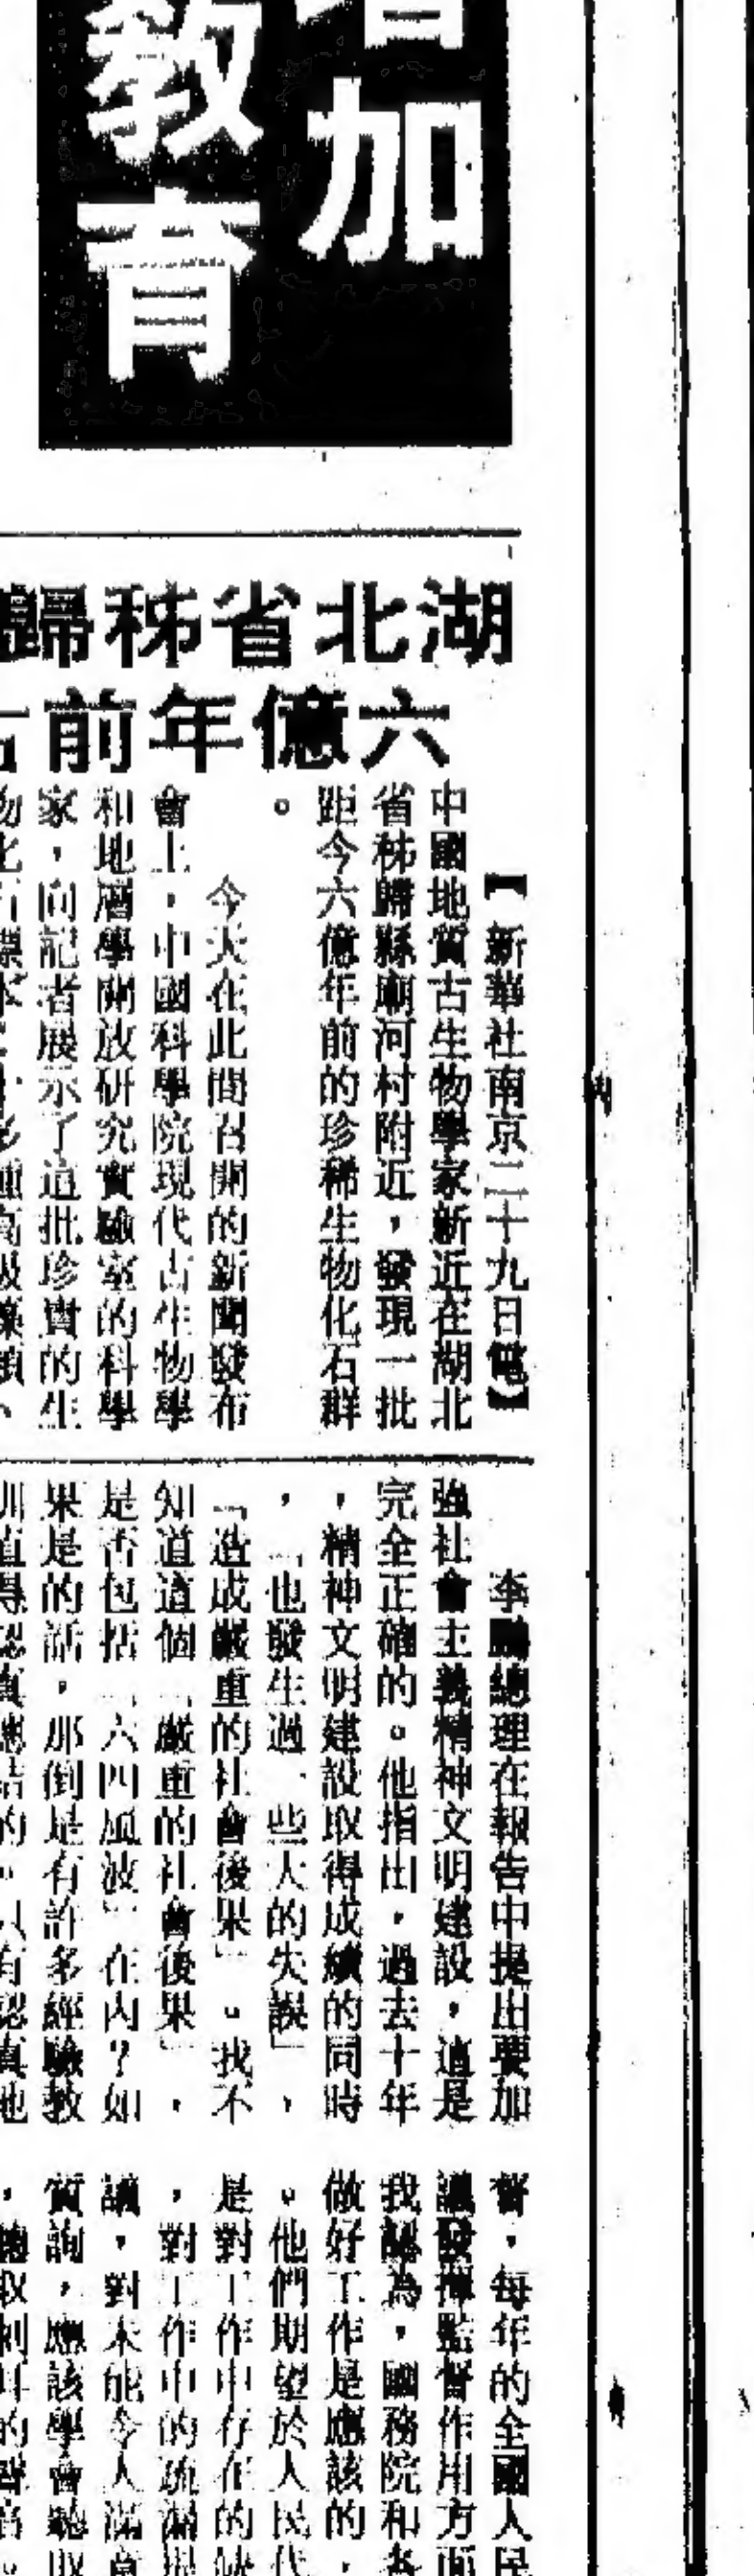 加
教育
湖北省秭歸
六億年前
【新華社南京二十九日電】
中國地質古生物學家新近在湖北
省秭歸縣廟河村附近，發現一批
距今六億年前的珍稀生物化石群
。
今天在此間召開的新聞發布
會上，中國科學院現代古生物學
和地層學開放研究實驗室的科學
家，向記者展示了這批珍貴的生
李鵬總理在報告中提出要加
強社會主義精神文明建設，這是
完全正確的。他指出，過去十年
，精神文明建設取得成績的同時
，「也發生過一些大的失誤」，
「造成嚴重的社會後果」。我不
知道這個「嚴重的社會後果」，
是否包括「六四風波」在內？如
果是的話，那倒是有許多經驗教
訓值得認真總結的。只有認真地
督，每年的全國人民
議發揮監督作用方面
我認為，國務院和各
做好工作是應該的，
。他們期望於人民代
是對工作中存在的缺
，對工作中的疏漏提
議，對未能令人滿意
質詢，應該學會聽取